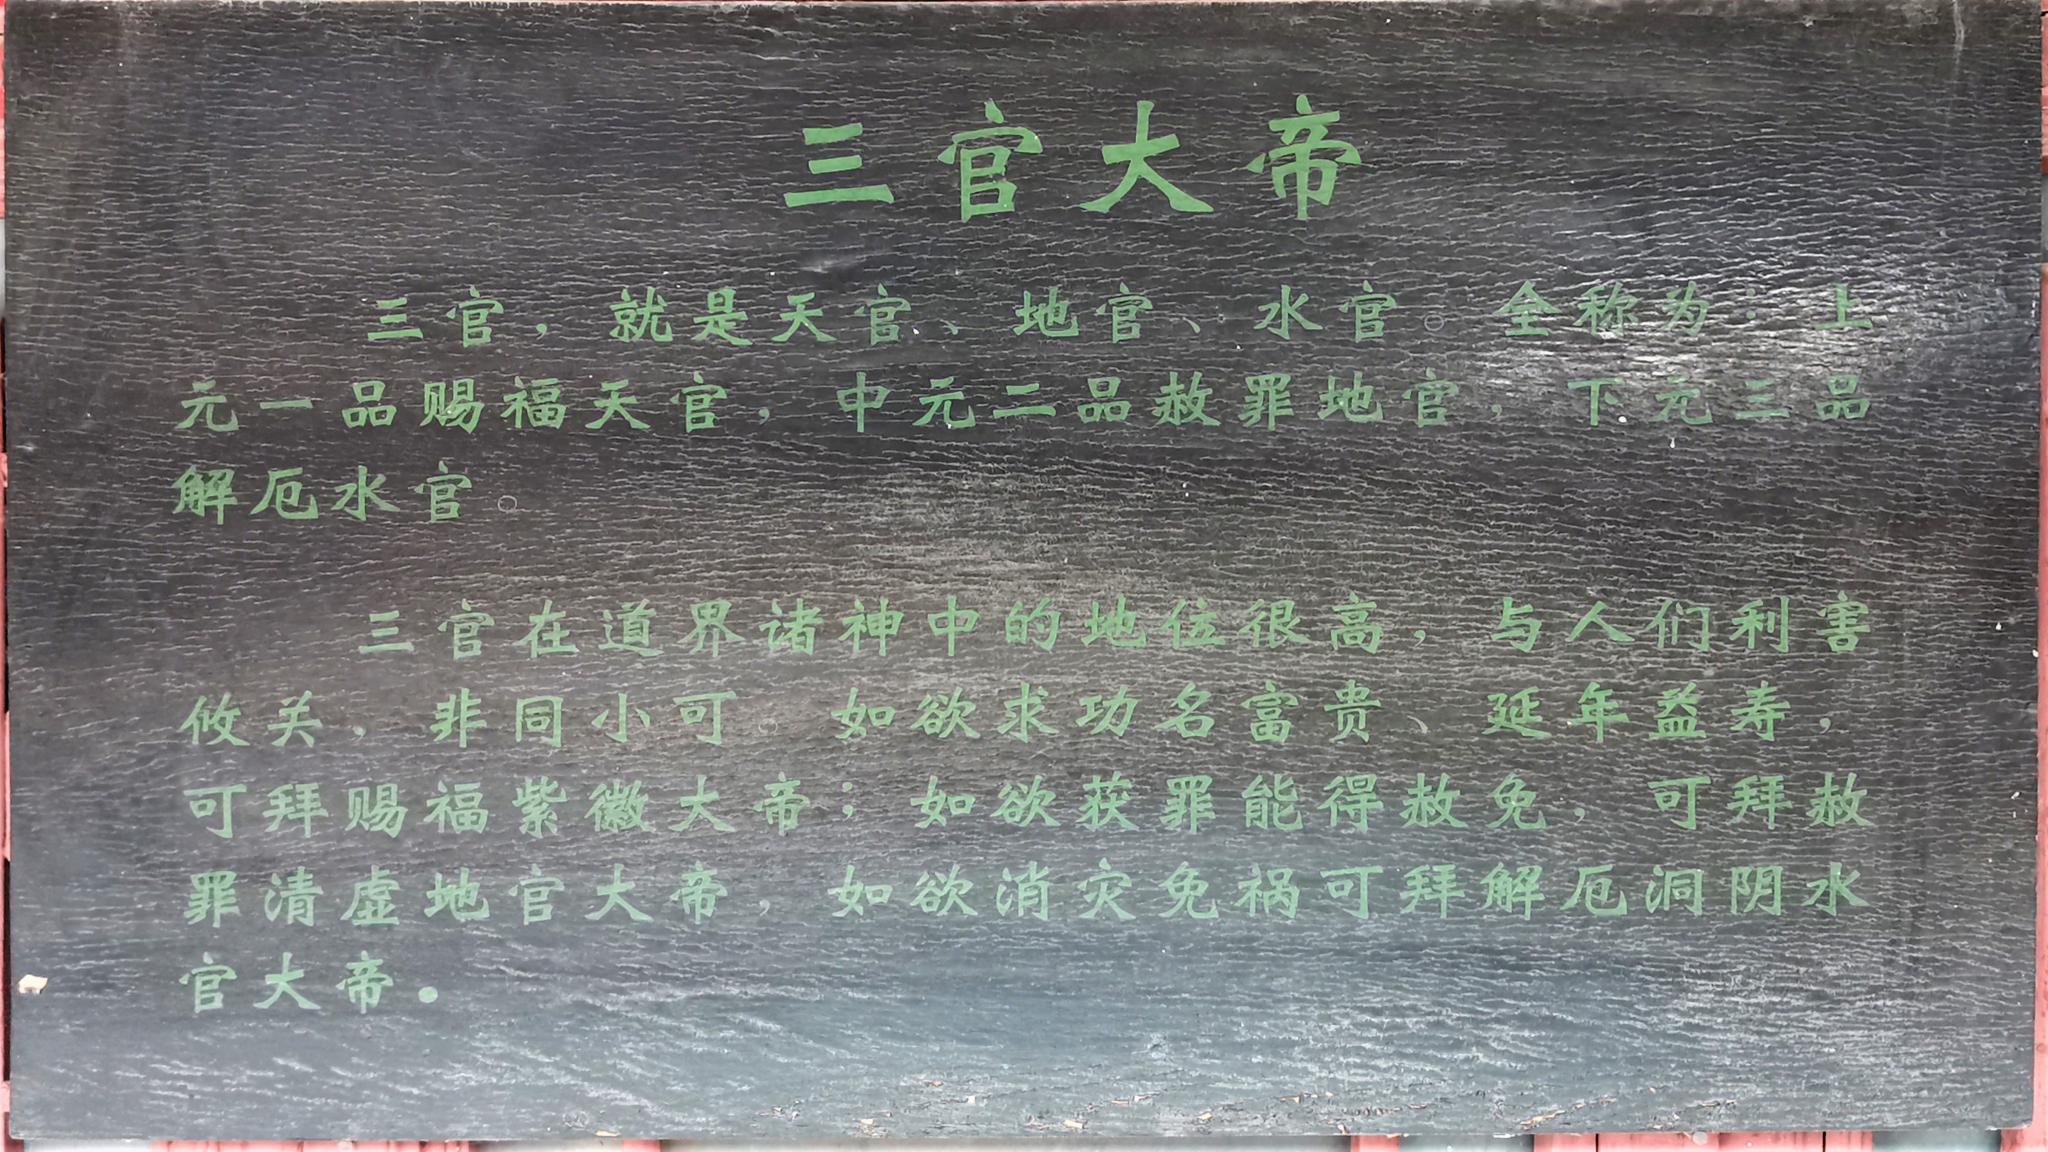 三官大帝
三官，就是天官、地官、水官。全称为：上
元一品赐福天官，中元二品赦罪地官，下元三品
解厄水官。
三官在道界诸神中的地位很高，与人们利害
攸关，非同小可。如欲求功名富贵、延年益寿，
可拜赐福紫徽大帝；如欲获罪能得赦免，可拜赦
罪清虚地官大帝，如欲消灾免祸可拜解厄洞阴水
官大帝。